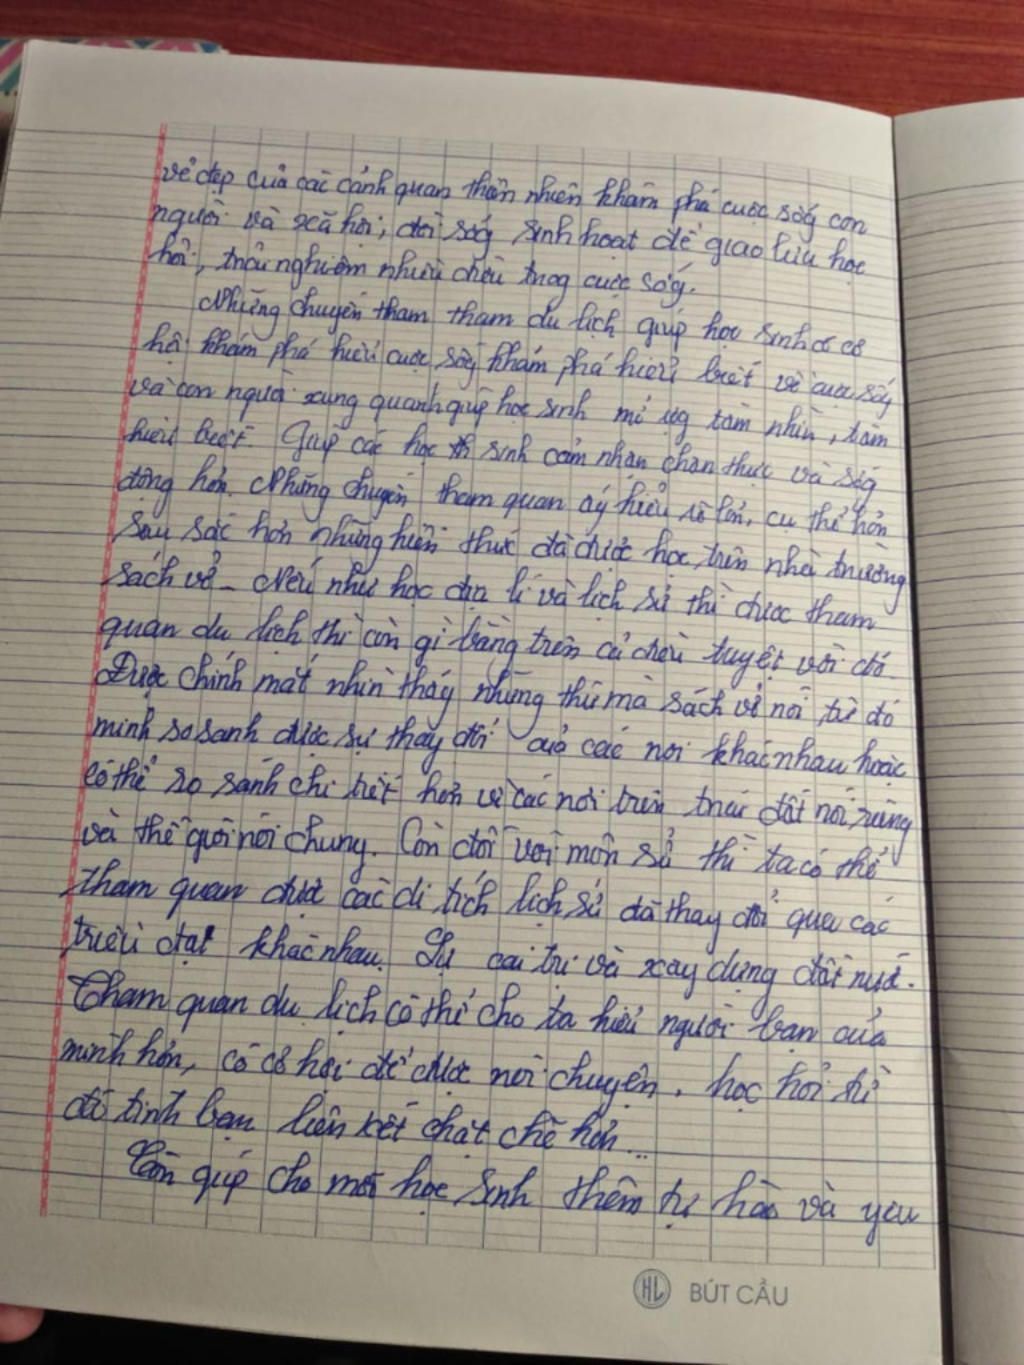 vẻ đẹp của các cảnh quan thiên nhiên khám phá cuộc sốg con
người và xã hội, đời sốg sinh hoạt để giao lưu học
hỏi, trải nghiệm nhiều điều trog cuộc sốg.
Những chuyến tham tham du lịch giúp học sinh có cơ
hội khám phá hiểu cuộc sốg khám phá hiểu biết về cuộc sốg
và con người xung quanh giúp học sinh mở rộg tầm nhìn, tầm
hiểu biết. Giúp các học sinh cảm nhận chân thực và sốg
động hơn. Những chuyến tham quan ấy hiểu rõ hơn, cụ thể hơn
sâu sắc hơn những kiến thức đã được học trên nhà trường
sách vở. Nếu như học địa lí và lịch sử thì được tham
quan du lịch thì còn gì bằng trên cả điều tuyệt vời đó
Được chính mắt nhìn thấy những thứ mà sách vở nói từ đó
mình so sanh được sự thay đổi của các nơi khác nhau hoặc
có thể so sánh chi tiết hơn về các nơi trên trái đất nói riêng
và thế giới nói chung. Còn đối với môn sử thì ta có thể
tham quan được các di tích lịch sử đã thay đổi qua các
triều đại khác nhau. Sự cai trị và xây dựng đất nước.
Tham quan du lịch có thể cho ta hiểu người bạn của
mình hơn, có cơ hội để được nói chuyện, học hỏi từ
đó tình bạn liên kết chặt chẽ hơn...
Còn giúp cho mỗi học sinh thêm tự hào và yêu
HL BÚT CẦU